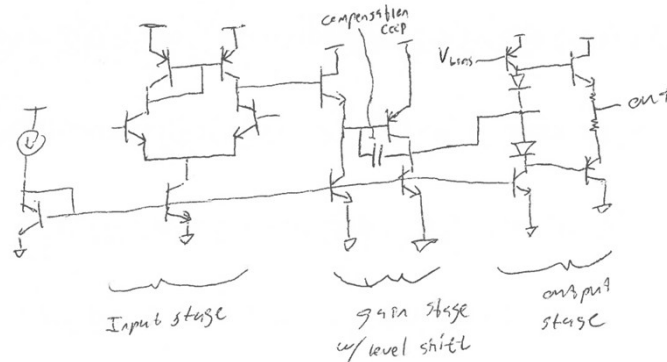 compensation
cap
Vbias
out
Input stage
gain stage
w/ level shift
output
stage